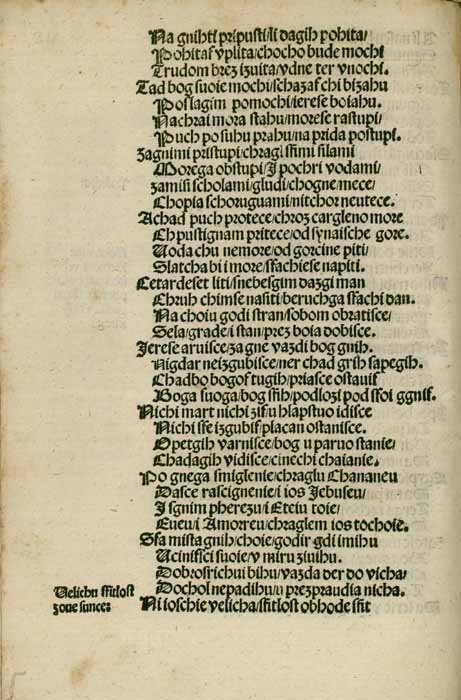 Na gnihti pripusti/li dagih pohita/
Pohitaſ vplita/chocho bude mochi
Trudom brez izuita/vdne ter vnochi.
Tad bog suoie mochi/schazaſ chi bizahu
Poslagim pomochi/ierese boiahu.
Nachrai mora stahu/morese rastupi/
Puch po suhu prahu/na prida postupi.
Zagnimi pristupi/chragl ſſimi silami
Morega obstupi/I pochri vodami/
Zamisi scholami/gludi/chogne/mece/
Chopia schoruguami/nitchor neutece.
Achad puch protece/chroz cargleno more
Ch pustignam pritece/od synaische gore.
Uoda chu nemore/od gorcine piti/
Slatcha bi i more/ſſachiese napiti.
Cetardeset liti/snebesgim dazgi man
Chruh chimse nasiti/beruchga ſſachi dan.
Na choiu godi stran/sobom obratisce/
Sela/grade/i stan/prez boia dobisce.
Jerese aruisce/zagne vazdi bog gnih.
Nigdar neizgubisce/ner chad grih sapegih.
Chadbo bogoſ tugih/priasce ostauiſ
Boga suoga/bog ſſih/podlozi pod ſſoi ggniſ.
Nichi mart nichi ziſ/u hlapstuo idisce
Nichi ſſe izgubiſ placan ostanisce.
Opetgih varnisce/bog u paruo stanie/
Chadagih vidisce/cinechi chaianie.
Po gnega smiglenie/chraglu Chananeu
Dasce rascignenie/i ios Jebuseu/
I sgnim pherezu/i Eteiu toie/
Eueu/i Amorreu/chraglem ios tochoie.
Sſa mista gnih/choie/godir gdi imihu
Ucinisſci suoie/v miru ziuihu.
Dobrosrichui bihu/vazda der do vicha/
Dochol nepadihu/u prezpraudia nicha.
Uelichu ſſitlost
zoue sunce:
Ni ioschie velicha/ſſitlost obhode ſſit